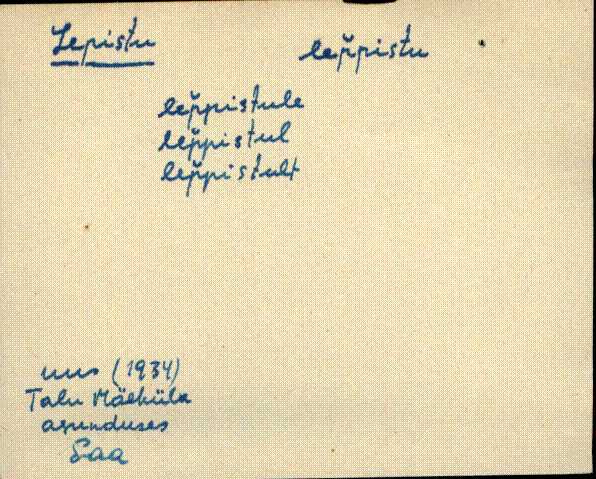 Lepistu lep̆pistu
lep̆pistule
lep̆pistul
lep̆pistult
uus (1934)
Talu Mäeküla
asunduses
Saa